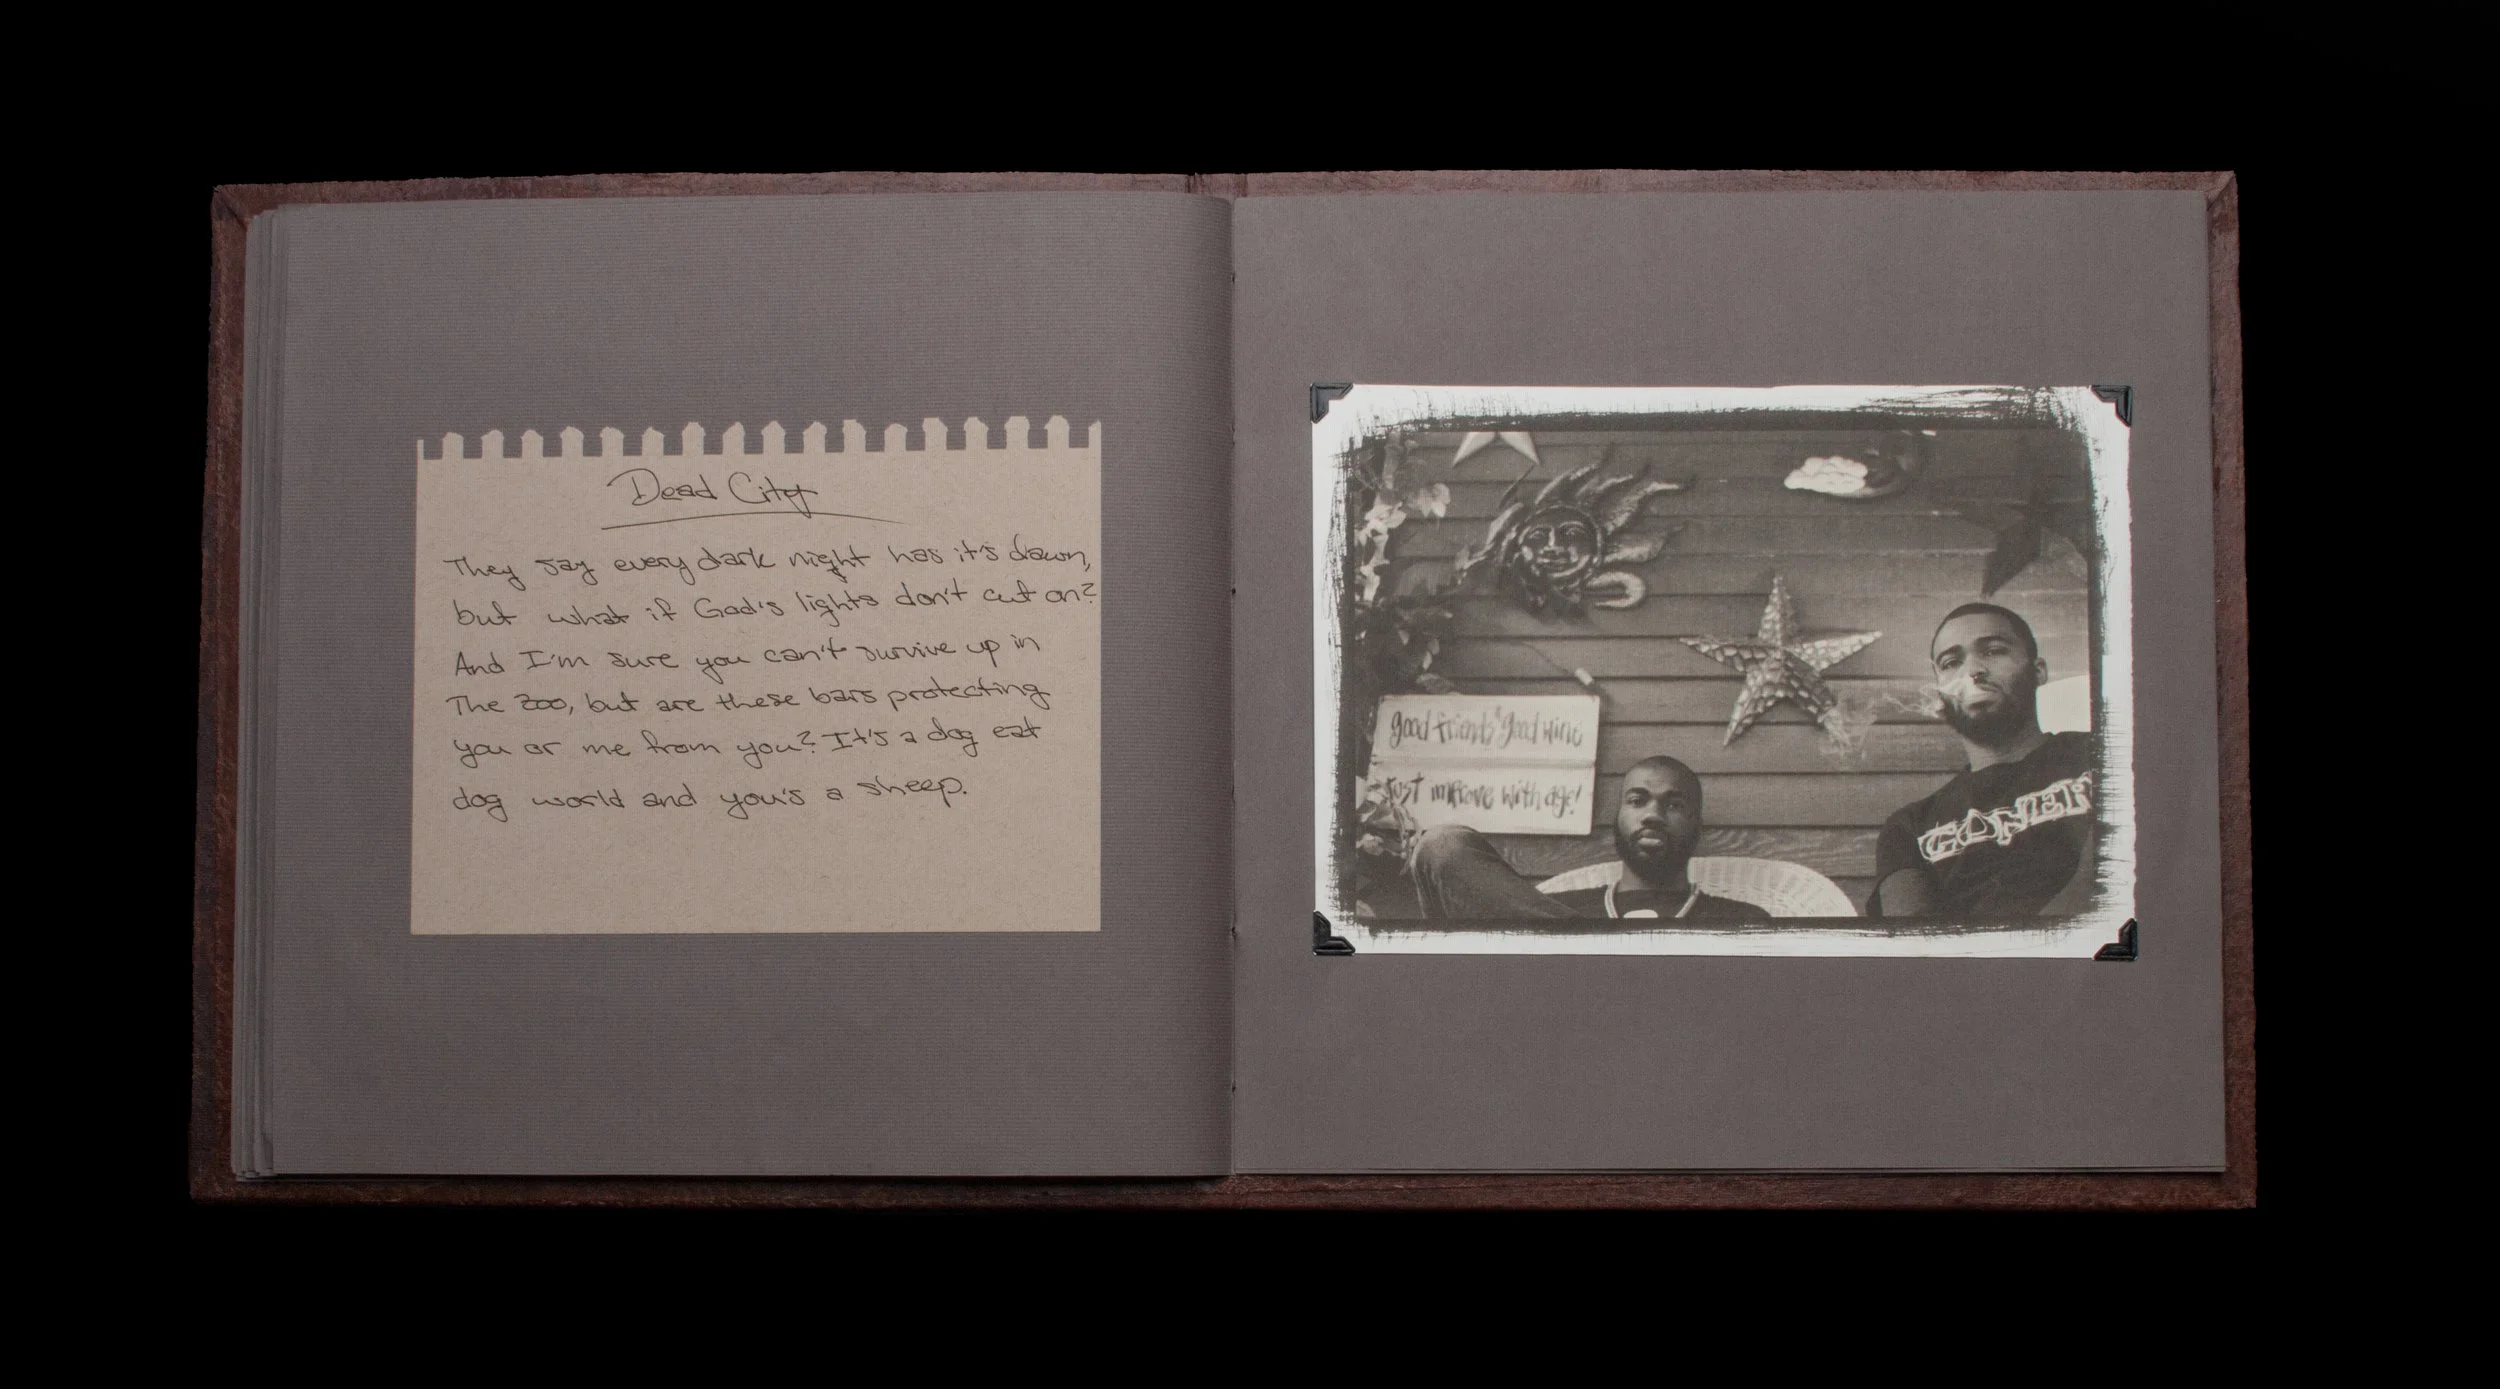 Dead City
They say every dark night has it's dawn,
but what if God's lights don't cut on?
And I'm sure you can't survive up in
The zoo, but are these bars protecting
you or me from you? It's a dog eat
dog world and you's a sheep.
good friends good wine
Just improve with age!